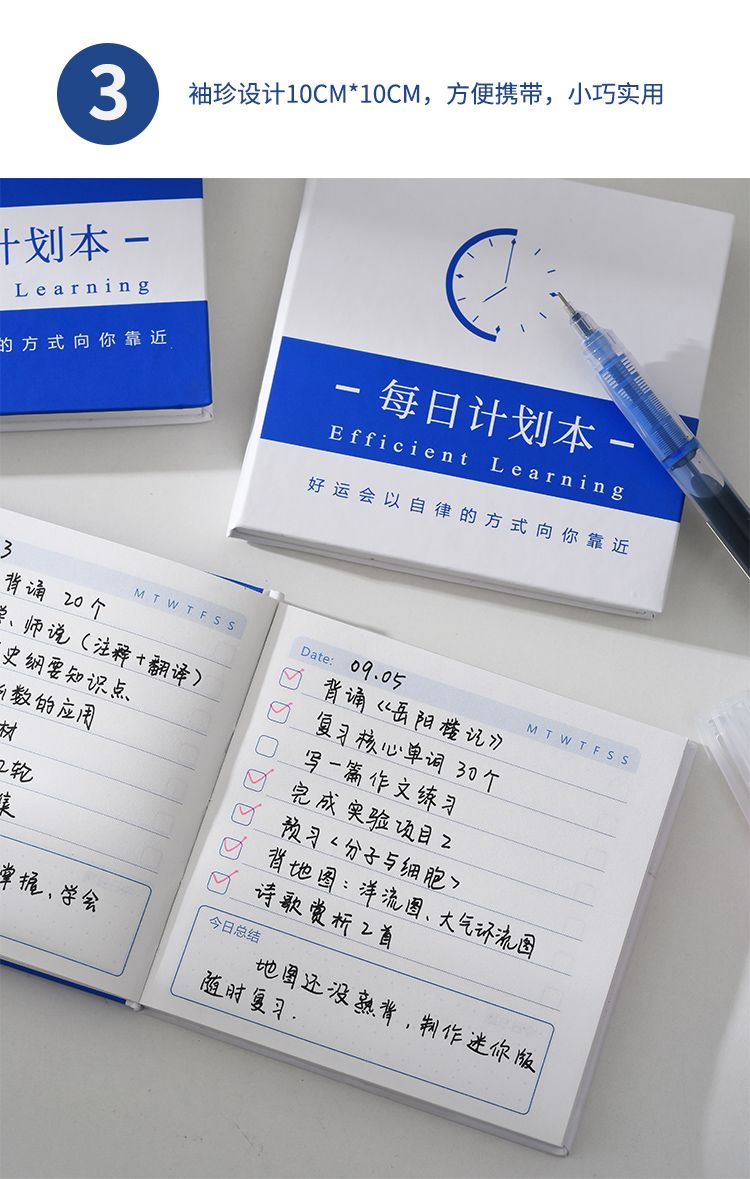 3
袖珍设计10CM*10CM，方便携带，小巧实用
计划本 –
Learning
的方式向你靠近
– 每日计划本 –
Efficient Learning
好运会以自律的方式向你靠近
3
M T W T F S S
背诵 20个
、师说（注释+翻译）
史纲要知识点
数的应用
材
2轮
集
掌握、学会
Date: 09.05
M T W T F S S
背诵《岳阳楼记》
复习核心单词 30个
写一篇作文练习
完成实验项目2
预习<分子与细胞>
背地图：洋流图、大气环流图
诗歌赏析2首
今日总结
地图还没熟背，制作迷你版
随时复习.